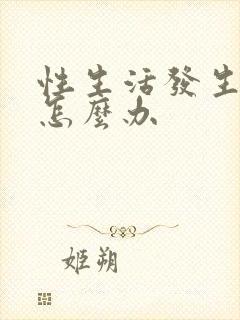 性生活發生
怎麼办
姬朔